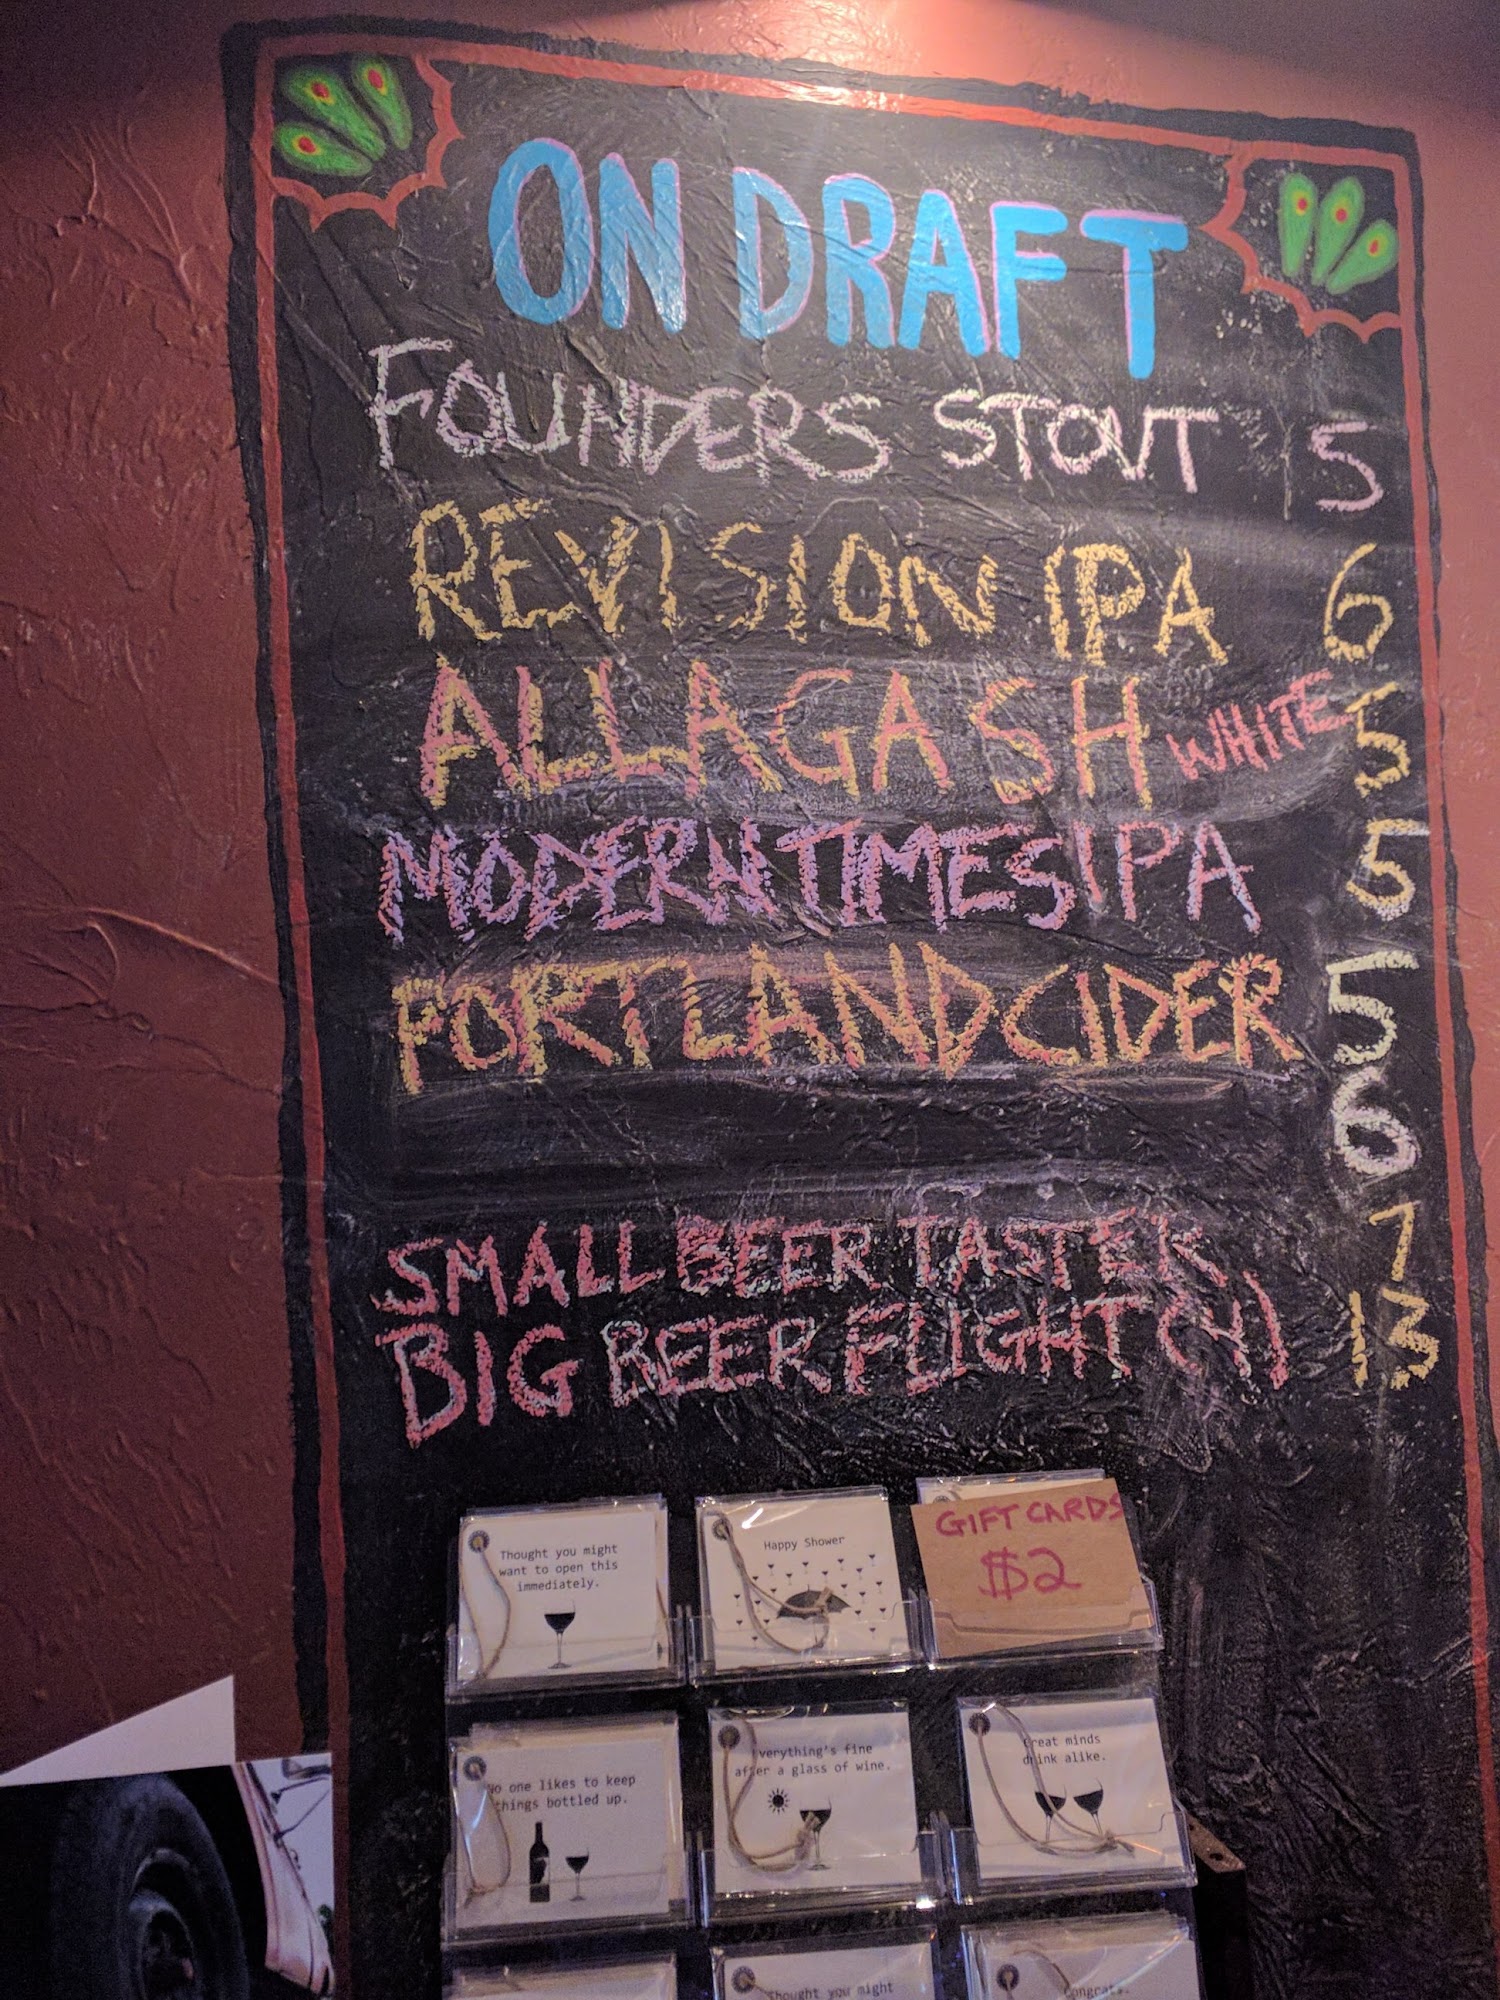 ON DRAFT
FOUNDERS STOUT 5
REVISION IPA 6
ALLAGASH WHITE 5
MODERN TIMES IPA 5
PORTLAND CIDER 5
6
SMALL BEER TASTER 7
BIG BEER FLIGHT (4) 13
Thought you might
want to open this
immediately.
Happy Shower
GIFT CARDS
$2
No one likes to keep
things bottled up.
everything's fine
after a glass of wine.
Great minds
drink alike.
Thought you might
Congrats.